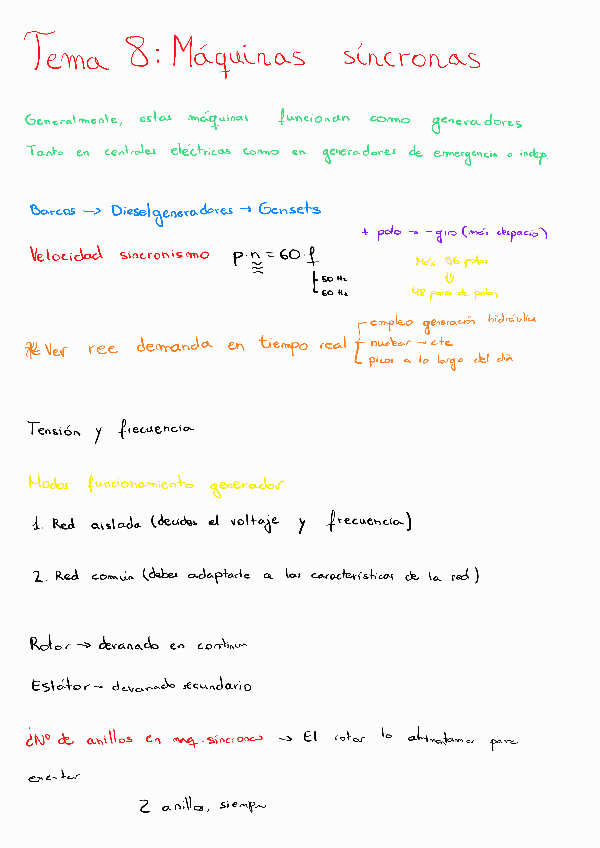 Tema 8: Máquinas síncronas
Generalmente, estas máquinas funcionan como generadores
Tanto en centrales eléctricas como en generadores de emergencia o indep.
Barcos → Dieselgeneradores → Gensets
+ polo → - giro (más despacio)
Velocidad sincronismo p·n = 60·f
50 Hz
60 Hz
Máx 96 polos
⇓
48 pares de polos
Ver ree demanda en tiempo real
empleo generación hidráulica
nuclear → cte
picos a lo largo del día
Tensión y frecuencia
Modos funcionamiento generador
1. Red aislada (decides el voltaje y frecuencia)
2. Red común (debes adaptarte a las características de la red)
Rotor → devanado en continua
Estátor → devanado secundario
¿Nº de anillos en maq. síncronas → El rotor lo alimentamos para
excitar
2 anillos, siempre